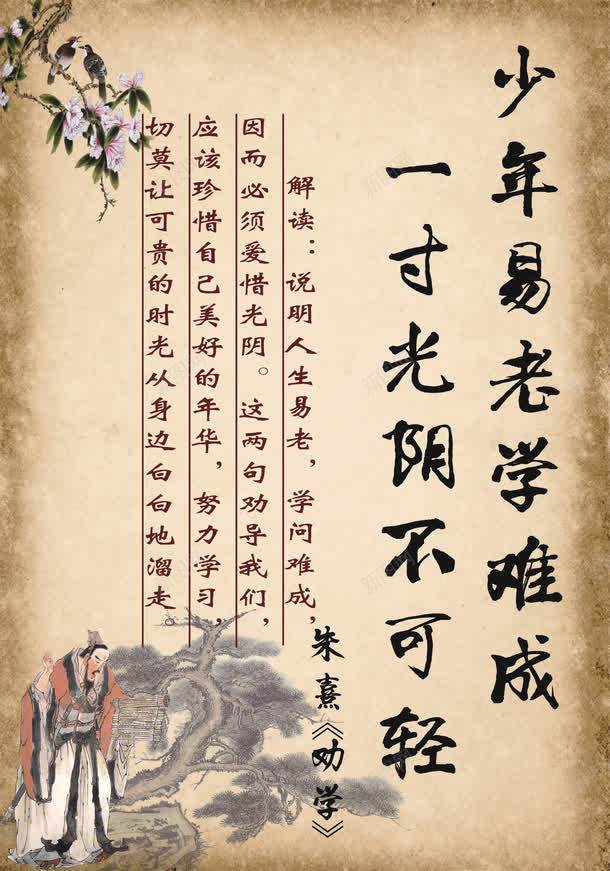 少年易老学难成
一寸光阴不可轻
解读：说明人生易老，学问难成，
因而必须爱惜光阴。这两句劝导我们，
应该珍惜自己美好的年华，努力学习，
切莫让可贵的时光从身边白白地溜走。
朱熹《劝学》